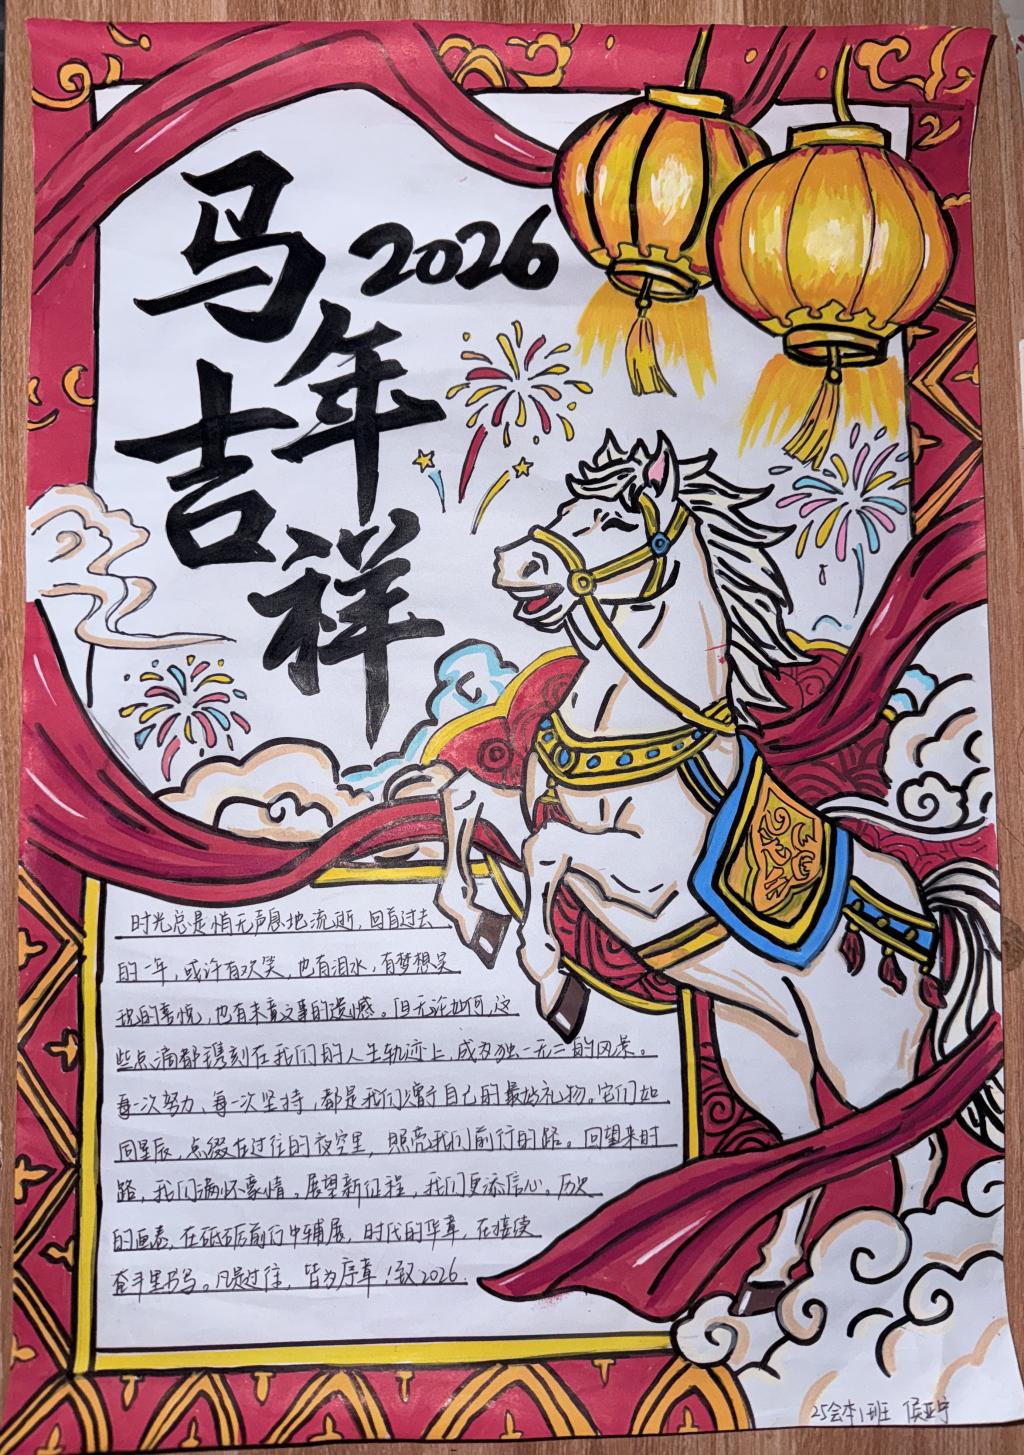 马年吉祥
2026
时光总是悄无声息地流逝，回首过去
的一年，或许有欢笑，也有泪水，有梦想实
现的喜悦，也有未竟之事的遗憾。但无论如何，这
些点滴都镌刻在我们的人生轨迹上，成为独一无二的风景。
每一次努力、每一次坚持，都是我们赠予自己的最好礼物。它们如
同星辰，点缀在过往的夜空里，照亮我们前行的路。回望来时
路，我们满怀豪情。展望新征程，我们更添信心。历史
的画卷，在砥砺前行中铺展，时代的华章，在接续
奋斗里书写。凡是过往，皆为序章！致2026.
25会本1班 侯亚宁